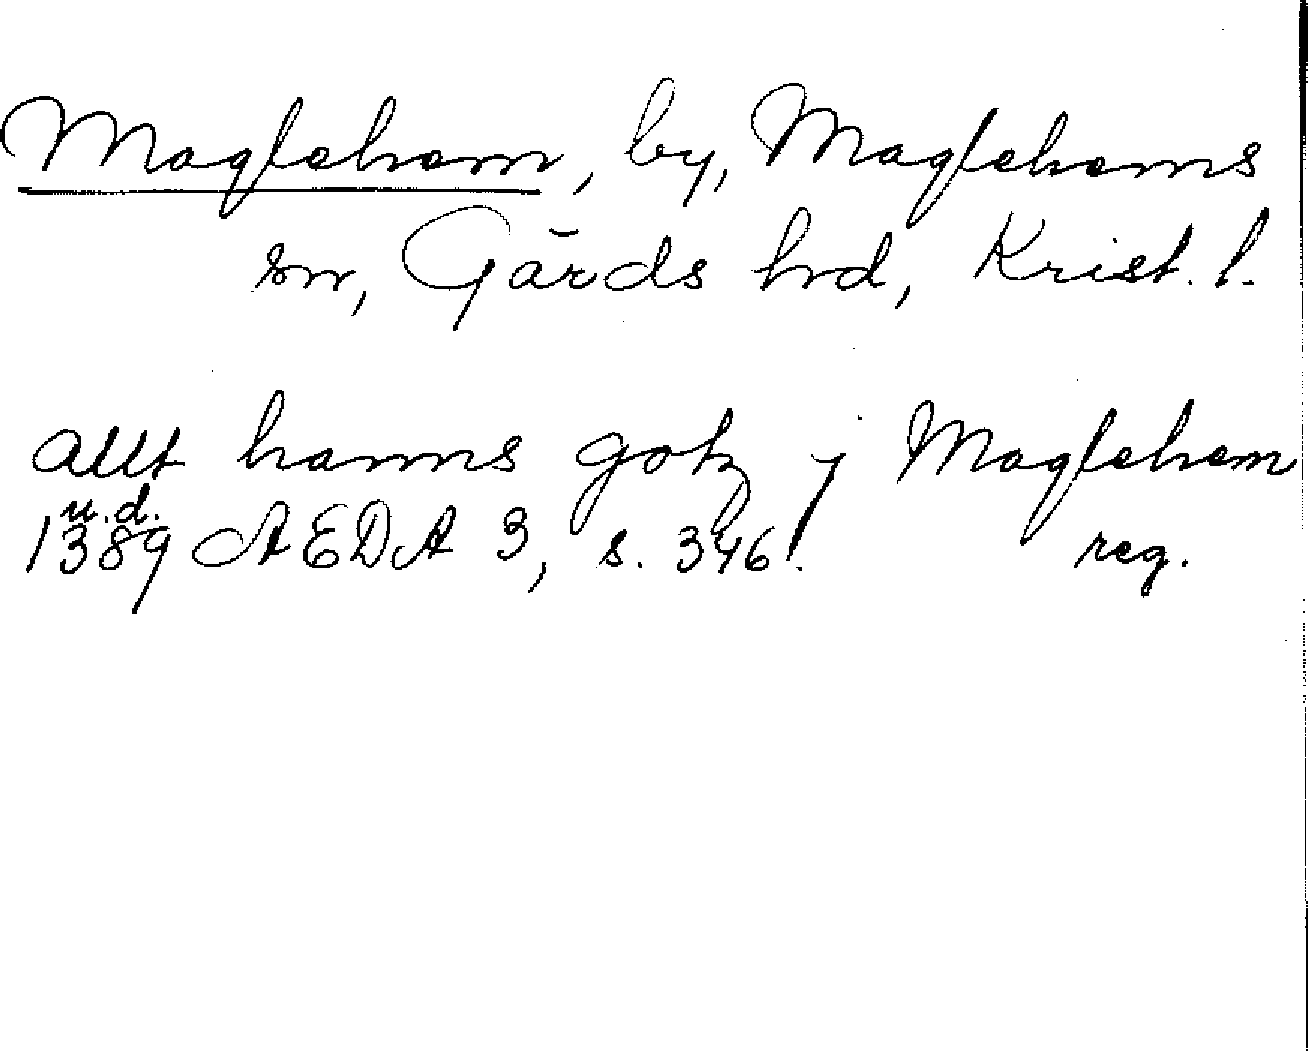 Maglehem, by, Maglehems
sn, Gärds hd, Krist. l.
allt hanns gotz j Maglehem
u.d.
1389 ÆDA 3, s. 346. reg.